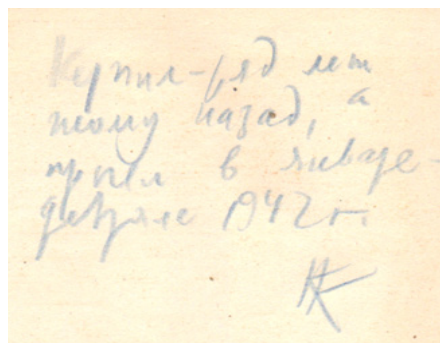 Купил - ряд лет
тому назад, а
прочёл в январе-
феврале 1942 г.
НК